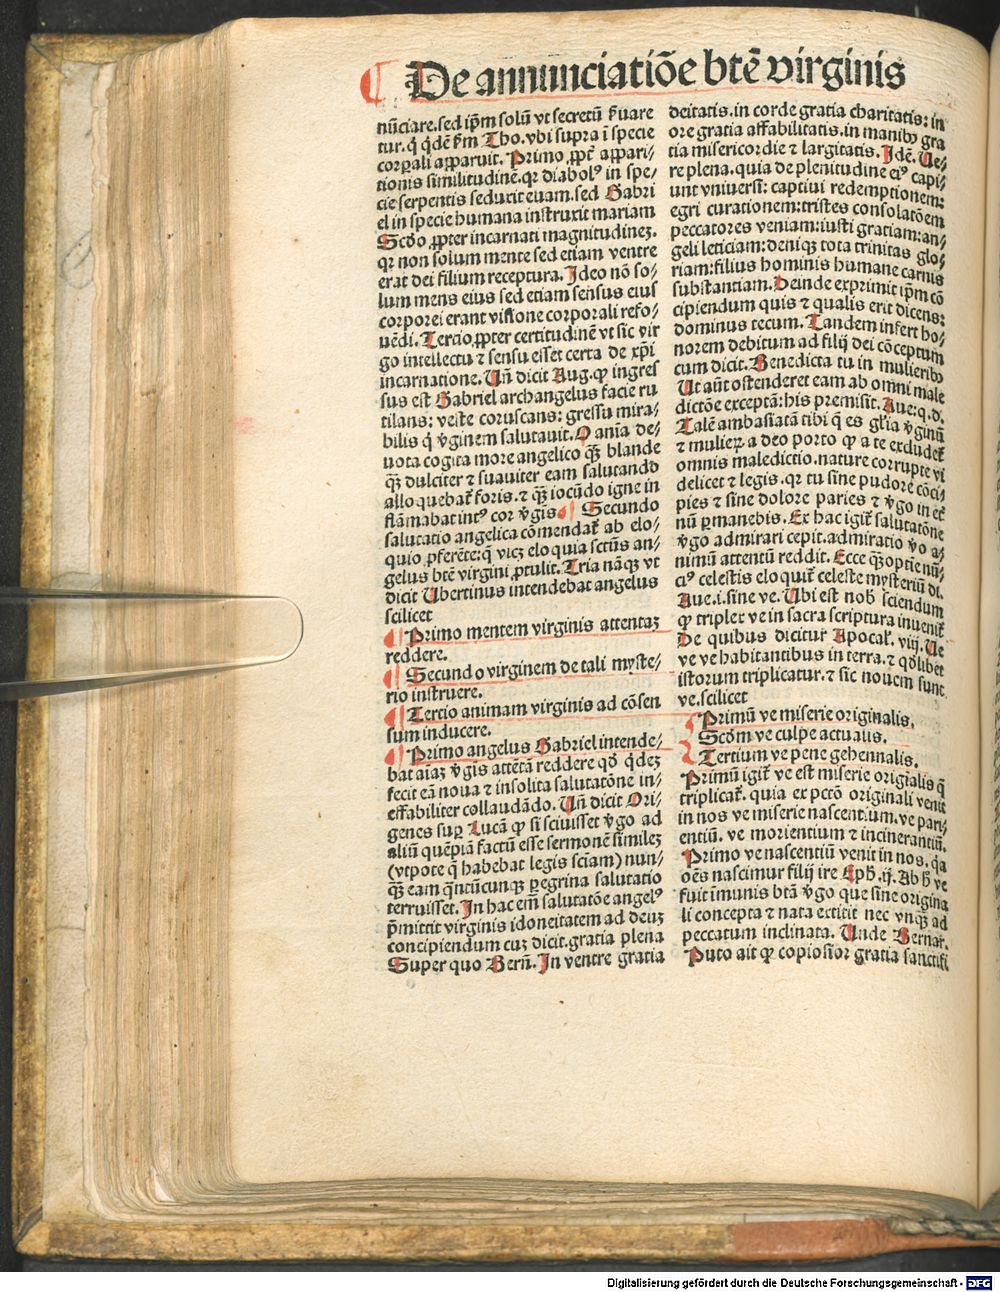 De annunciatiōe btē virginis
nūciare.sed ip̄m solū vt secretū p̄uare
tur.q̇ q̇dē ẜm Tho.vbi supra ī specie
corꝑali apparuit. Primo ꝓpt̄ appari⸗
tionis similitudinē.qꝛ diabolꝰ in spe⸗
cie serpentis seduxit euam.sed Gabri
el in specie humana instruxit mariam
Scd̄o ꝓpter incarnati magnitudinez.
qꝛ non solum mente sed etiam ventre
erat dei filium receptura. Ideo nō so⸗
lum mens eius sed etiam sensus eius
corporei erant visione corporali refo⸗
uēdi. Tercio ꝓpter certitudinē vt sic vir
go intellectu ⁊ sensu esset certa de xp̄i
incarnatione. Un̄ dicit Aug. ꝙ ingres
sus est Gabriel archangelus facie ru
tilans: veste coruscans: gressu mira⸗
bilis q̇ v̓ginem salutauit. O ania de⸗
uota cogita more angelico qꝫ̄ blande
qꝫ̄ dulciter ⁊ suauiter eam salutando
alloquebat̄ foris. ⁊ qꝫ̄ iocūdo igne in
flāmabat intꝰ cor v̓gis ¶ Secundo
salutatio angelica cōmendat̄ ab elo⸗
quio ꝓferēte:q̇ vicꝫ eloquia sctūs an⸗
gelus btē virgini ꝓtulit. Tria nāqꝫ vt
dicit Ubertinus intendebat angelus
scilicet
¶ Primo mentem virginis attentaꝫ
reddere.
¶ Secundo virginem de tali myste⸗
rio instruere.
¶ Tercio animam virginis ad cōsen
sum inducere.
¶ Primo angelus Gabriel intende⸗
bat aīaꝫ v̓gis attētā reddere qd̄ q̇dez
fecit eā noua ⁊ insolita salutatōne in⸗
effabiliter collaudādo. Un̄ dicit Ori⸗
genes suꝑ Lucā ꝙ si sciuisset v̓go ad
aliū quēpiā factū esse sermonē similez
(vtpote q̄ habebat legis sciam) nun⸗
qꝫ̄ eam q̄ntūcunqꝫ ꝑegrina salutatio
terruisset. In hac em̄ salutatōe angelꝰ
p̄mittit virginis idoneitatem ad deuꝫ
concipiendum cuꝫ dicit.gratia plena
Super quo Bern̄. In ventre gratia
deitatis.in corde gratia charitatis: in
ore gratia affabilitatis.in manibꝰ gra
tia misericordie ⁊ largitatis. Idē. Ue⸗
re plena.quia de plenitudine eiꝰ capi⸗
unt vniuersi: captiui redemptionem:
egri curationem:tristes consolatōem
peccatores veniam:iusti gratiam:an⸗
geli leticiam:deniqꝫ tota trinitas glo⸗
riam:filius hominis humane carnis
substantiam. Deinde exprimit ip̄m cō
cipiendum quis ⁊ qualis erit dicens:
dominus tecum. Tandem infert ho⸗
norem debitum ad filij dei cōceptum
cum dicit. Benedicta tu in mulieribꝰ
Ut aūt ostenderet eam ab omni male
dictōe exceptā:his premisit. Aue:q.d.
Talē ambasiatā tibi q̄ es glīa v̓ginū
⁊ mulieꝝ a deo porto ꝙ a te excludet̄
omnis maledictio.nature corrupte vi
delicet ⁊ legis.qꝛ tu sine pudore cōci⸗
pies ⁊ sine dolore paries ⁊ v̓go in et̄
nū ꝑmanebis. Ex hac igit̄ salutatōne
v̓go admirari cepit.admiratio v̓o a⸗
nimū attentū reddit. Ecce qꝫ̄ optīe nū⸗
ciꝰ celestis eloquit̄ celeste mysteriū di.
Aue.i.sine ve. Ubi est nob̄ sciendum
ꝙ triplex ve in sacra scriptura inuenit̄
De quibus dicitur Apocal̄. viij. Ue
ve ve habitantibus in terra. ⁊ qd̄libet
istorum triplicatur. ⁊ sic nouem sunt
ve.scilicet
Primū ve miserie originalis.
Scd̄m ve culpe actualis.
Tertium ve pene gehennalis.
Primū igit̄ ve est miserie origialis q̄
triplicat̄. quia ex pctō originali venit
in nos ve miserie nascentium. ve pari⸗
entiū. ve morientium ⁊ incinerantiū.
Primo ve nascentiū venit in nos. q̇a
oēs nascimur filij ire Eph̄. ij. Ab h̄ ve
fuit īmunis btā v̓go que sine origina
li concepta ⁊ nata extitit nec vnqꝫ̄ ad
peccatum inclinata. Unde Bernar̄.
Puto ait ꝙ copiosior gratia sanctifi
Digitalisierung gefördert durch die Deutsche Forschungsgemeinschaft - DFG